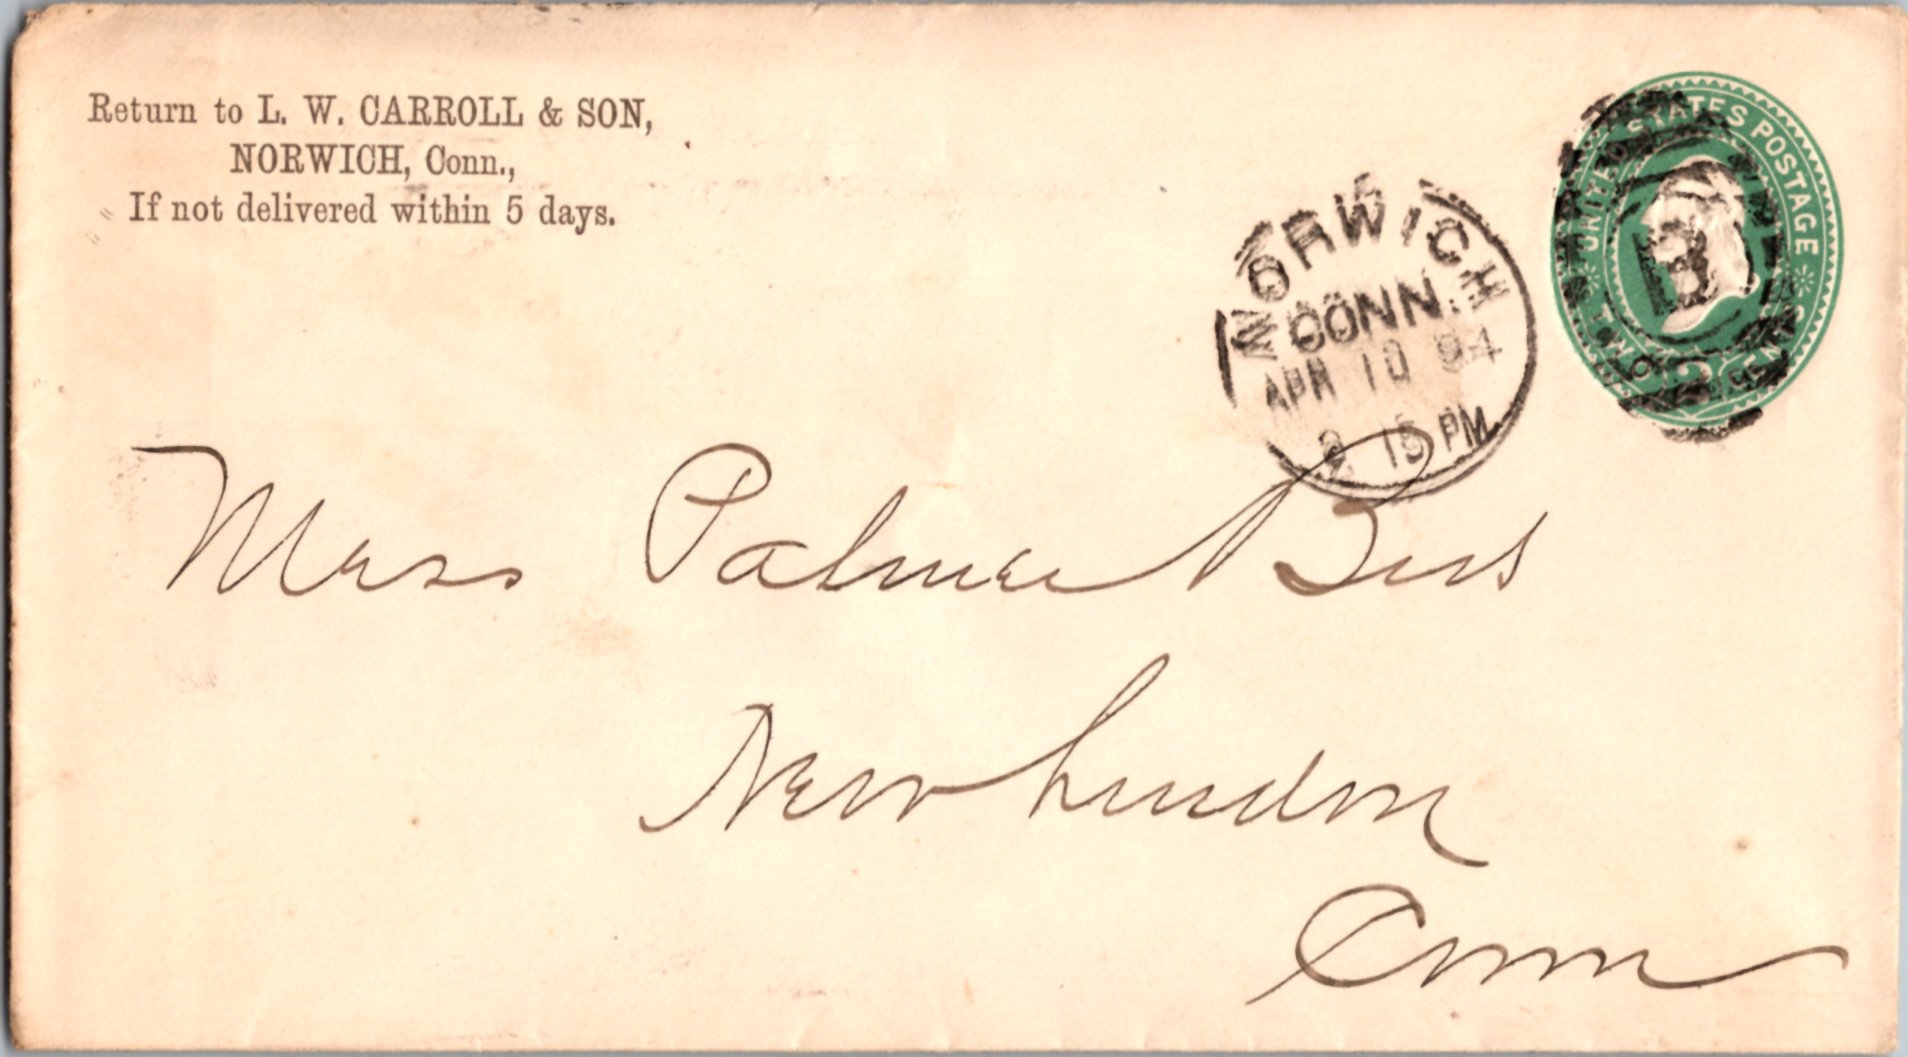 Return to L. W. CARROLL & SON,
NORWICH, Conn.,
If not delivered within 5 days.
UNITED STATES POSTAGE
TWO CENTS
NORWICH
CONN.
APR 10 94
2 15 PM
Mess Palmer Bros
New London
Conn